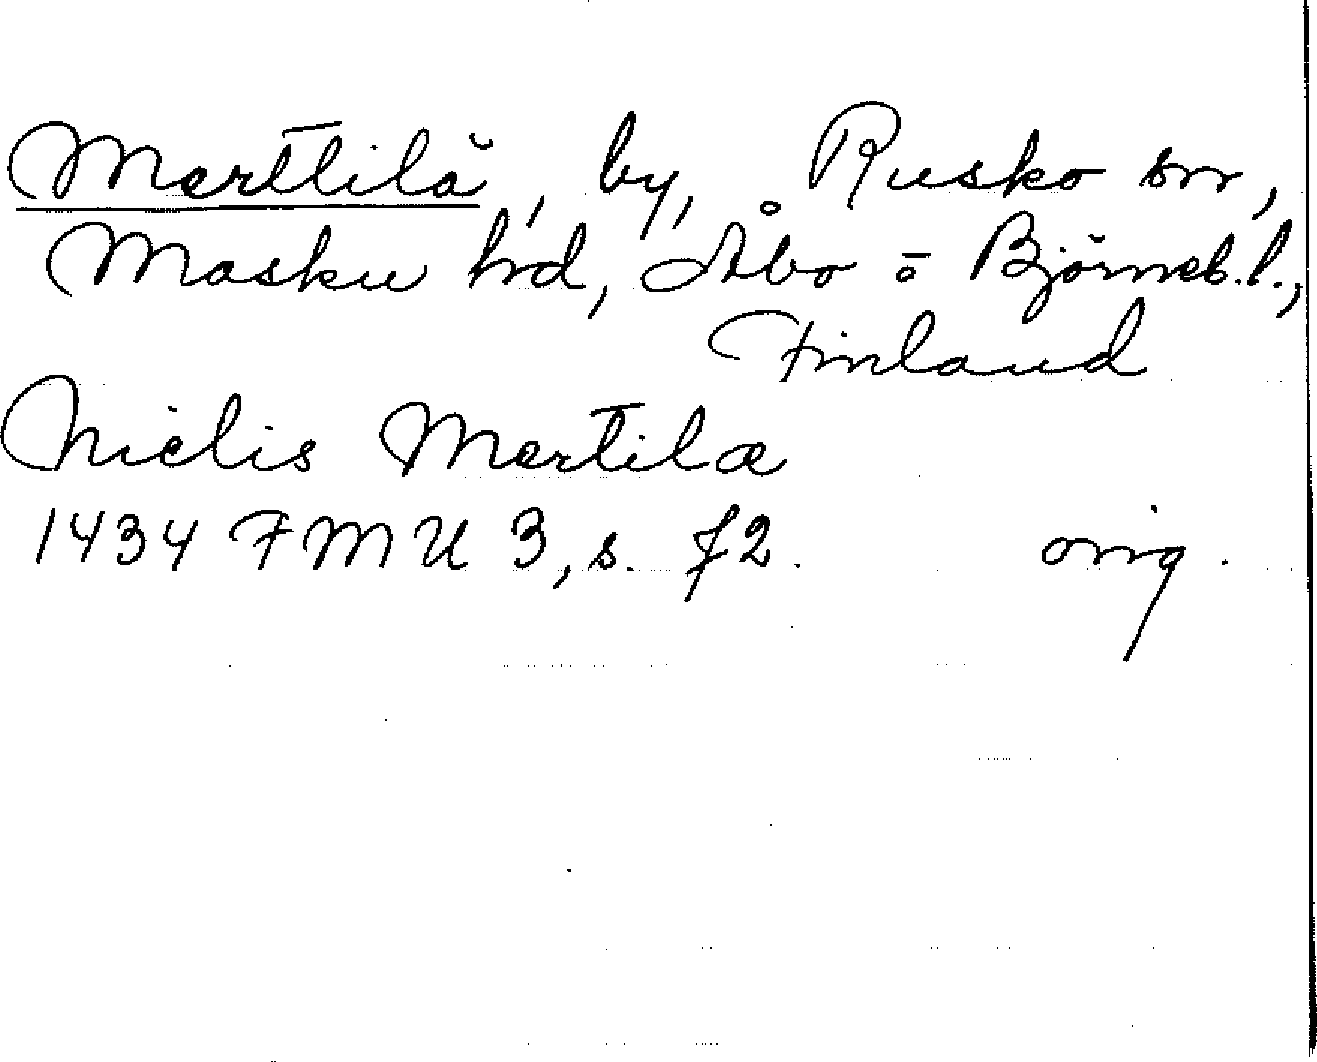 Merttilä, by, Rusko sn,
Masku hd, Åbo o Björneb.l.,
Finland
Nielis Mertilæ
1434 FMU 3, s. 72. orig.